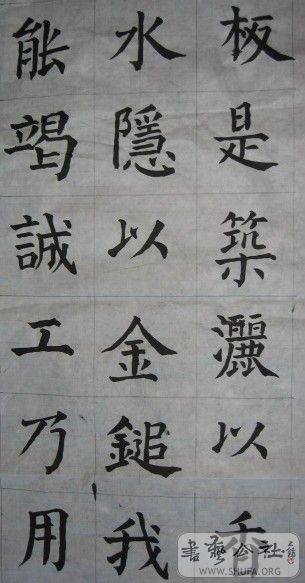 板是築灑以香
水隱以金鎚我
能竭誠工乃用
書藝公社
WWW.SHUFA.ORG